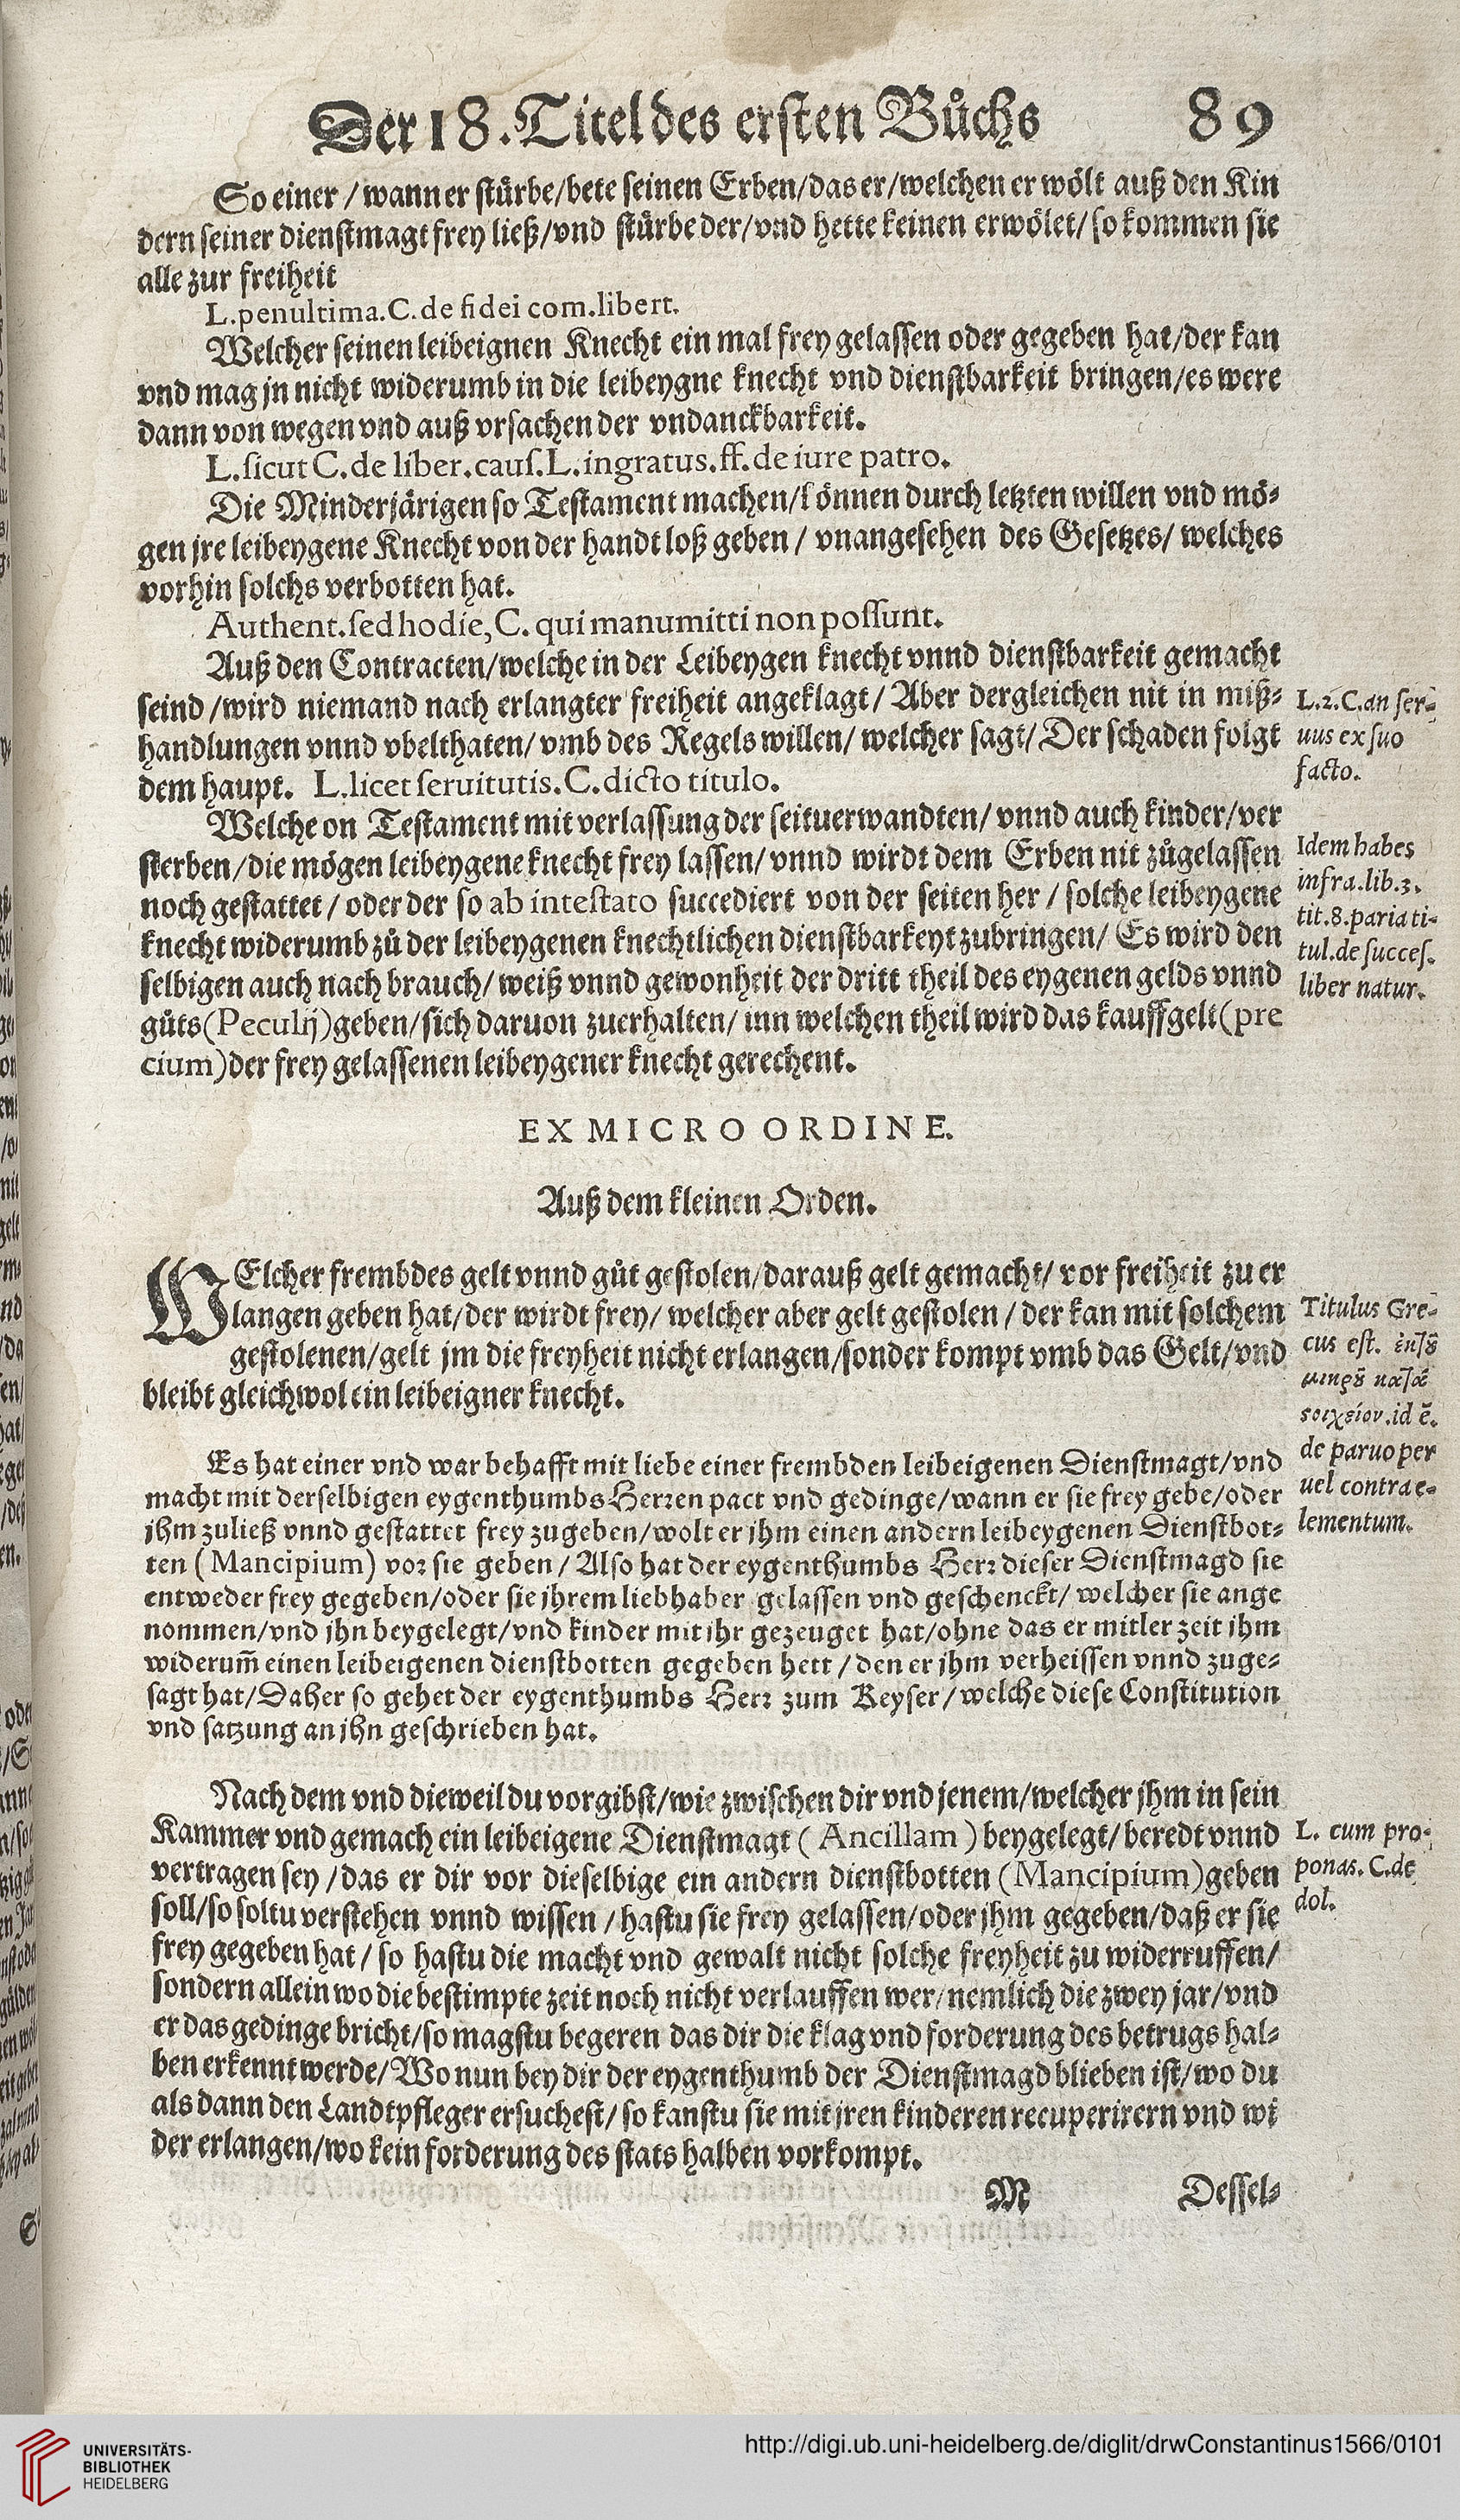 Der 18. Titel des ersten Bůchs 89
So einer / wann er stürbe / bete seinen Erben / das er / welchen er wölt auß den Kin
dern seiner dienstmagt frey ließ / vnd stürbe der / vnd hette keinen erwölet / so kommen sie
alle zur freiheit
L. penultima. C. de fidei com. libert.
Welcher seinen leibeignen Knecht ein mal frey gelassen oder gegeben hat / der kan
vnd mag jn nicht widerumb in die leibeygne knecht vnd dienstbarkeit bringen / es were
dann von wegen vnd auß vrsachen der vndanckbarkeit.
L. sicut C. de liber. caus. L. ingratus. ff. de iure patro.
Die Minderjärigen so Testament machen / können durch letzten willen vnd mö-
gen jre leibeygene Knecht von der handt loß geben / vnangesehen des Gesetzes / welches
vorhin solchs verbotten hat.
Authent. sed hodie, C. qui manumitti non possunt.
Auß den Contracten / welche in der Leibeygen knecht vnnd dienstbarkeit gemacht
seind / wird niemand nach erlangter freiheit angeklagt / Aber dergleichen nit in miß-
handlungen vnnd vbelthaten / vmb des Regels willen / welcher sagt / Der schaden folgt
dem haupt. L. licet seruitutis. C. dicto titulo.
L. 2. C. an ser-
uus ex suo
facto.
Welche on Testament mit verlassung der seituerwandten / vnnd auch kinder / ver
sterben / die mögen leibeygene knecht frey lassen / vnnd wirdt dem Erben nit zůgelassen
noch gestattet / oder der so ab intestato succediert von der seiten her / solche leibeygene
knecht widerumb zů der leibeygenen knechtlichen dienstbarkeyt zubringen / Es wird den
selbigen auch nach brauch / weiß vnnd gewonheit der dritt theil des eygenen gelds vnnd
gůts (Peculij) geben / sich daruon zuerhalten / inn welchen theil wird das kauffgelt (pre
cium) der frey gelassenen leibeygener knecht gerechent.
Idem habes
infra. lib. 3.
tit. 8. paria ti-
tul. de succes.
liber natur.
EX MICRO ORDINE.
Auß dem kleinen Orden.
WElcher frembdes gelt vnnd gůt gestolen / darauß gelt gemacht / vor freiheit zu er
langen geben hat / der wirdt frey / welcher aber gelt gestolen / der kan mit solchem
gestolenen / gelt jm die freyheit nicht erlangen / sonder kompt vmb das Gelt / vnd
bleibt gleichwol ein leibeigner knecht.
Titulus Gre-
cus est.
id ē.
de paruo per
uel contra e-
lementum.
Es hat einer vnd war behafft mit liebe einer frembden leibeigenen Dienstmagt / vnd
macht mit derselbigen eygenthumbs Herren pact vnd gedinge / wann er sie frey gebe / oder
jhm zuließ vnnd gestattet frey zugeben / wolt er jhm einen andern leibeygenen Dienstbot-
ten (Mancipium) vor sie geben / Also hat der eygenthumbs Herr dieser Dienstmagd sie
entweder frey gegeben / oder sie jhrem liebhaber gelassen vnd geschenckt / welcher sie ange
nommen / vnd jhn beygelegt / vnd kinder mit jhr gezeuget hat / ohne das er mitler zeit jhm
widerum̄ einen leibeigenen dienstbotten gegeben hett / den er jhm verheissen vnnd zuge-
sagt hat / Daher so gehet der eygenthumbs Herr zum Keyser / welche diese Constitution
vnd satzung an jhn geschrieben hat.
Nach dem vnd dieweil du vorgibst / wie zwischen dir vnd jenem / welcher jhm in sein
Kammer vnd gemach ein leibeigene Dienstmagt (Ancillam) beygelegt / beredt vnnd
vertragen sey / das er dir vor dieselbige ein andern dienstbotten (Mancipium) geben
soll / so soltu verstehen vnnd wissen / hastu sie frey gelassen / oder jhm gegeben / daß er sie
frey gegeben hat / so hastu die macht vnd gewalt nicht solche freyheit zu widerruffen /
sondern allein wo die bestimpte zeit noch nicht verlauffen wer / nemlich die zwey jar / vnd
er das gedinge bricht / so magstu begeren das dir die klag vnd forderung des betrugs hal-
ben erkennt werde / Wo nun bey dir der eygenthumb der Dienstmagd blieben ist / wo du
als dann den Landtpfleger ersuchest / so kanstu sie mit jren kinderen recuperirern vnd wi
der erlangen / wo kein forderung des stats halben vorkompt.
L. cum pro-
ponas. C. de
dol.
M Dessel-
UNIVERSITÄTS-
BIBLIOTHEK
HEIDELBERG
http://digi.ub.uni-heidelberg.de/diglit/drwConstantinus1566/0101